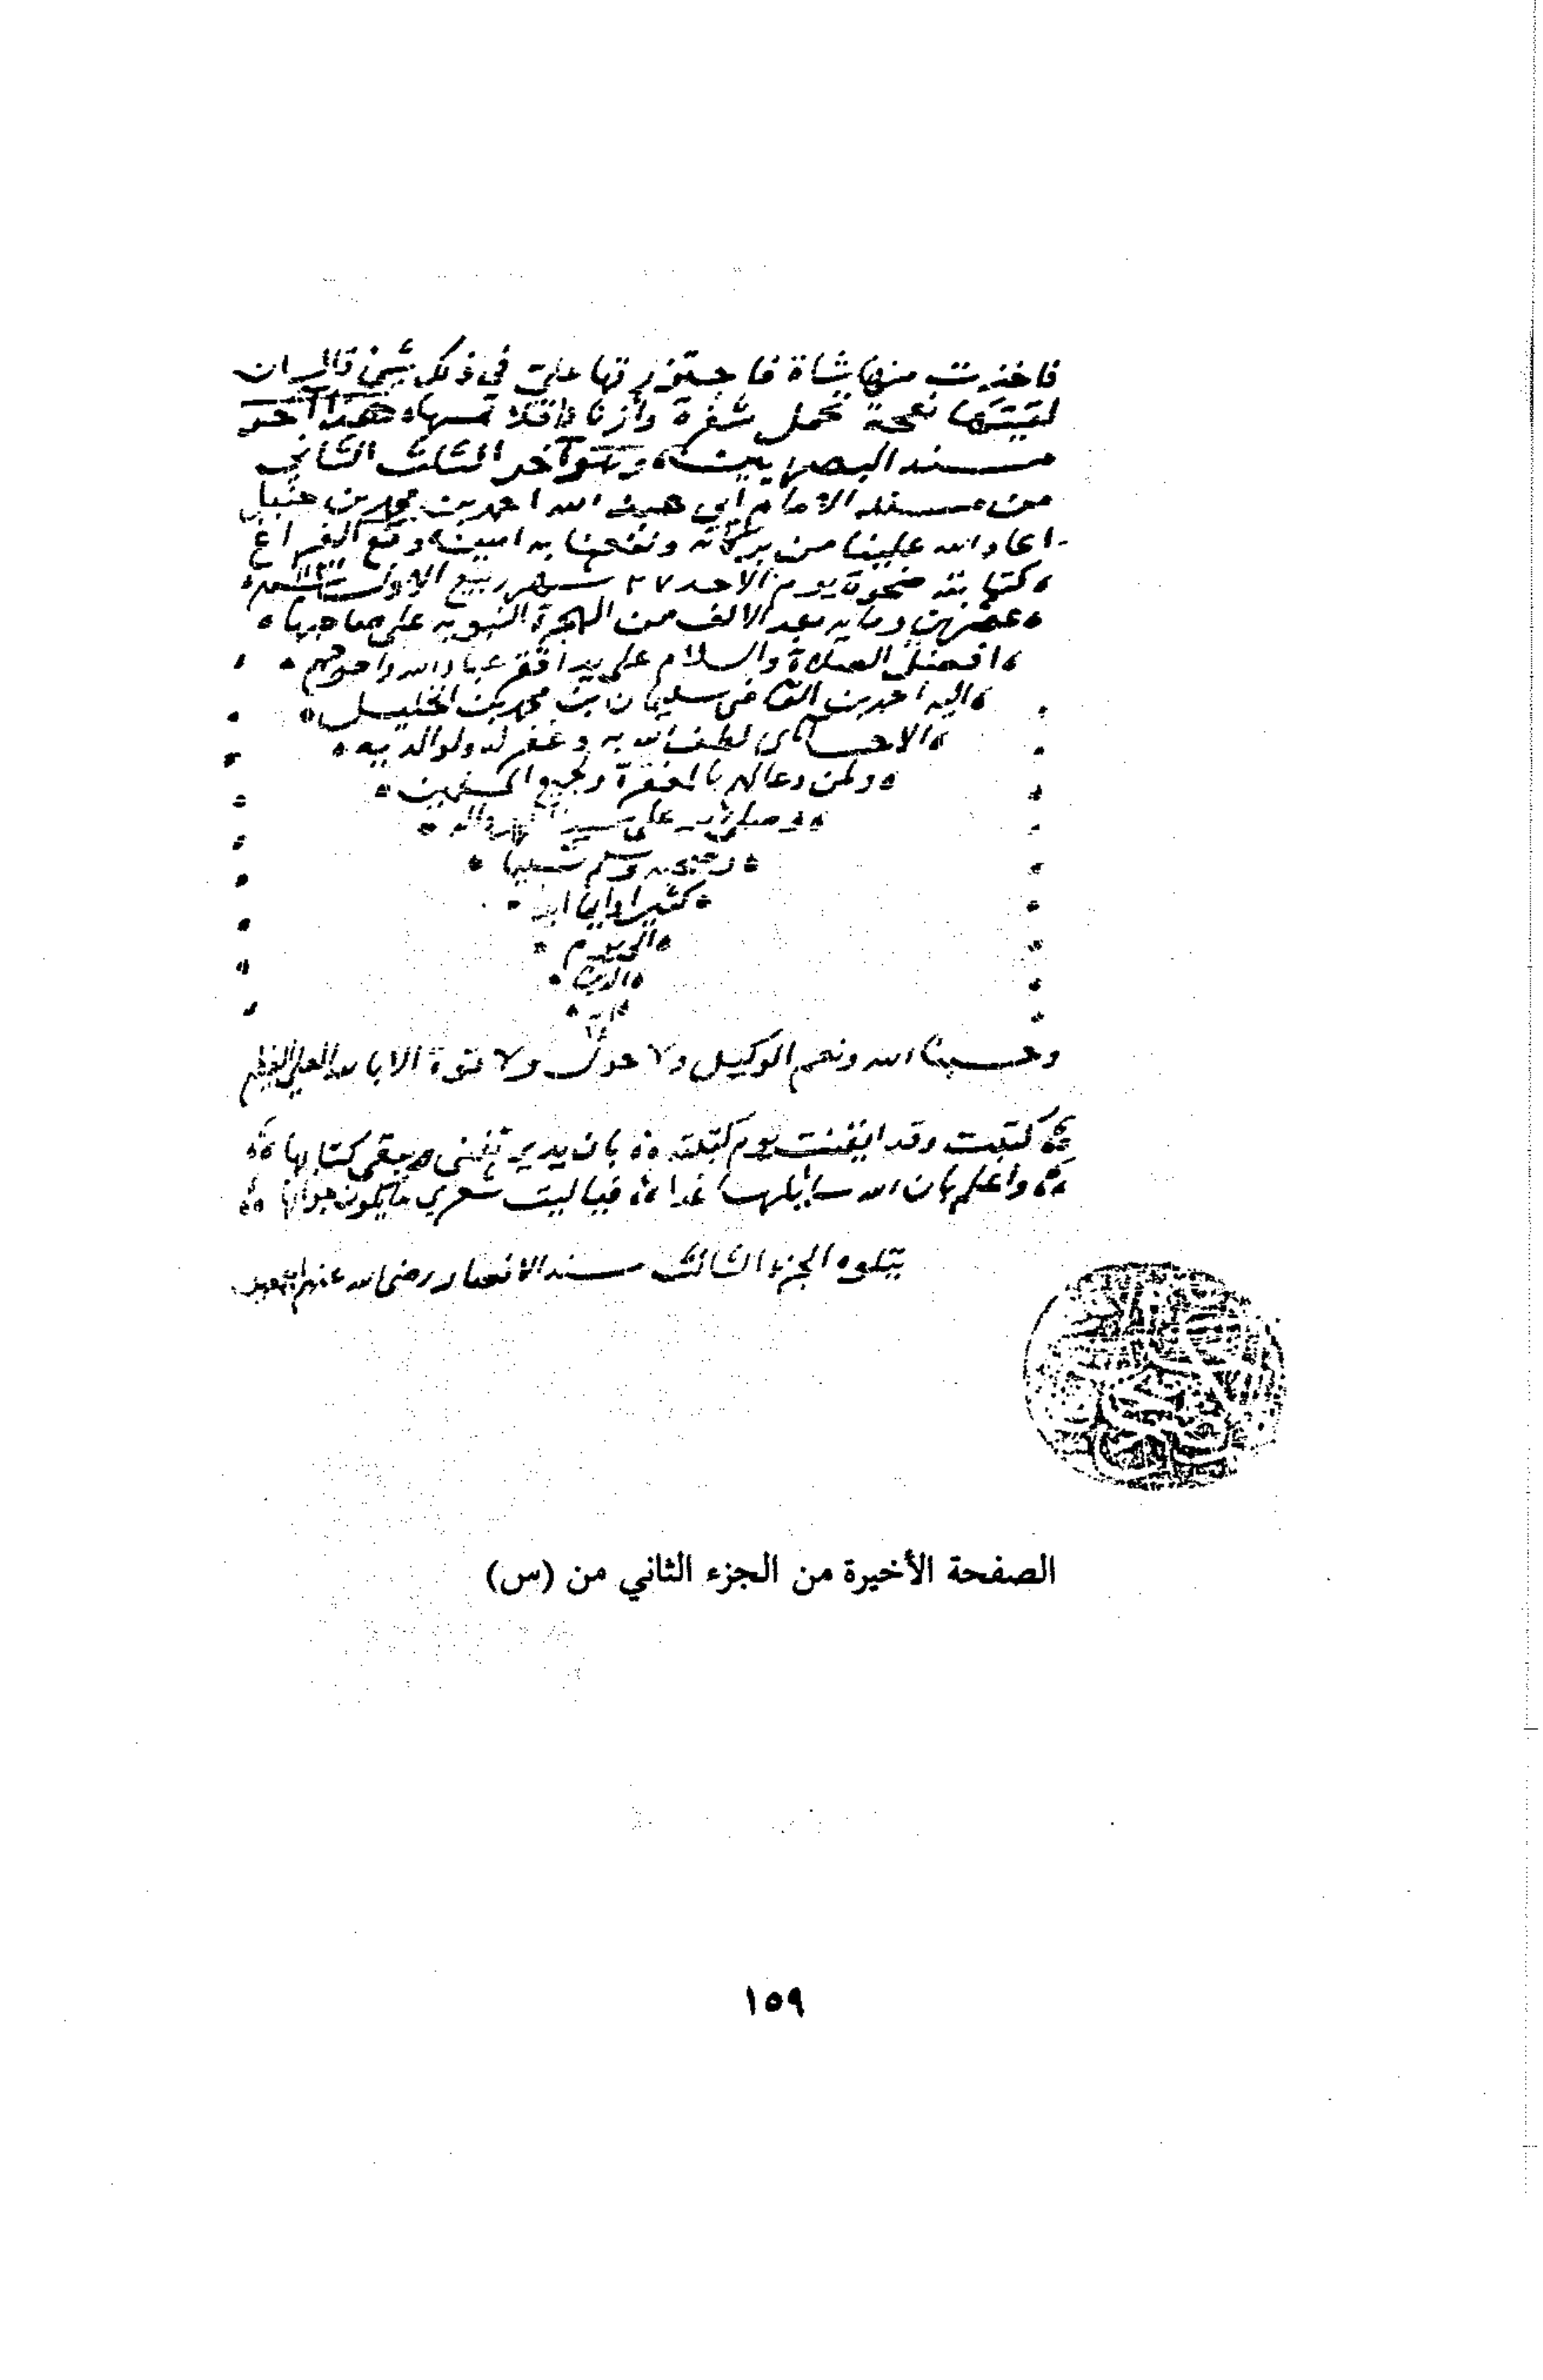 فاخذت منها شاة فاجتزرتها علي في ذلك شيئ قال ان
لقيتها نعجة تحمل شفرة وأزنادا فلا تمسها هذا آخر
مسند البصريين وهو آخر الثلث الثاني
من مسند الامام أبي عبد الله احمد بن محمد بن حنبل
اعاد الله علينا من بركاته ونفعنا به امين وقع الفراغ
كتابته ضحوة يوم الاحد ٢٧ شهر ربيع الاول
وماية بعد الالف من الهجرة النبوية على صاحبها
افضل الصلاة والسلام على يد افقر عباد الله واحوجهم
اليه احمد بن القاضي سليمان بن محمد بن الخليل
الاحسائي لطف الله به وغفر له ولوالديه
ولمن دعا لهم بالمغفرة ولجميع المسلمين
وصلى الله على محمد واله
وصحبه وسلم تسليما
كثيرا دايما ابدا
الى يوم
الدين
وحسبنا الله ونعم الوكيل ولا حول ولا قوة الا بالله العلي العظيم
كتبت وقد ايقنت يوم كتبته بان يدي تفنى ويبقى كتابها
واعلم بان الله سايلها غدا فيا ليت شعري ما يكون جوابها
يتلوه الجزء الثالث مسند الانصار رضى الله عنهم اجمعين
الصفحة الأخيرة من الجزء الثاني من (س)
١٥٩